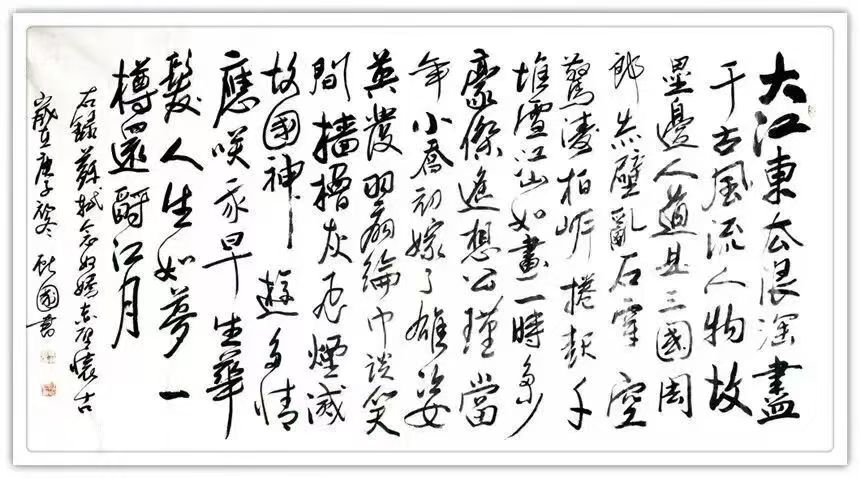 大江東去浪淘盡
千古風流人物故
壘邊人道是三國周
郎赤壁亂石穿空
驚濤拍岸捲起千
堆雪江山如畫一時多少
豪傑遙想公瑾當
年小喬初嫁了雄姿
英發羽扇綸巾談笑
間檣櫓灰飛煙滅
故國神遊多情
應笑我早生華
髮人生如夢一
樽還酹江月
右錄蘇軾念奴嬌赤壁懷古
歲在庚子秋冬國書